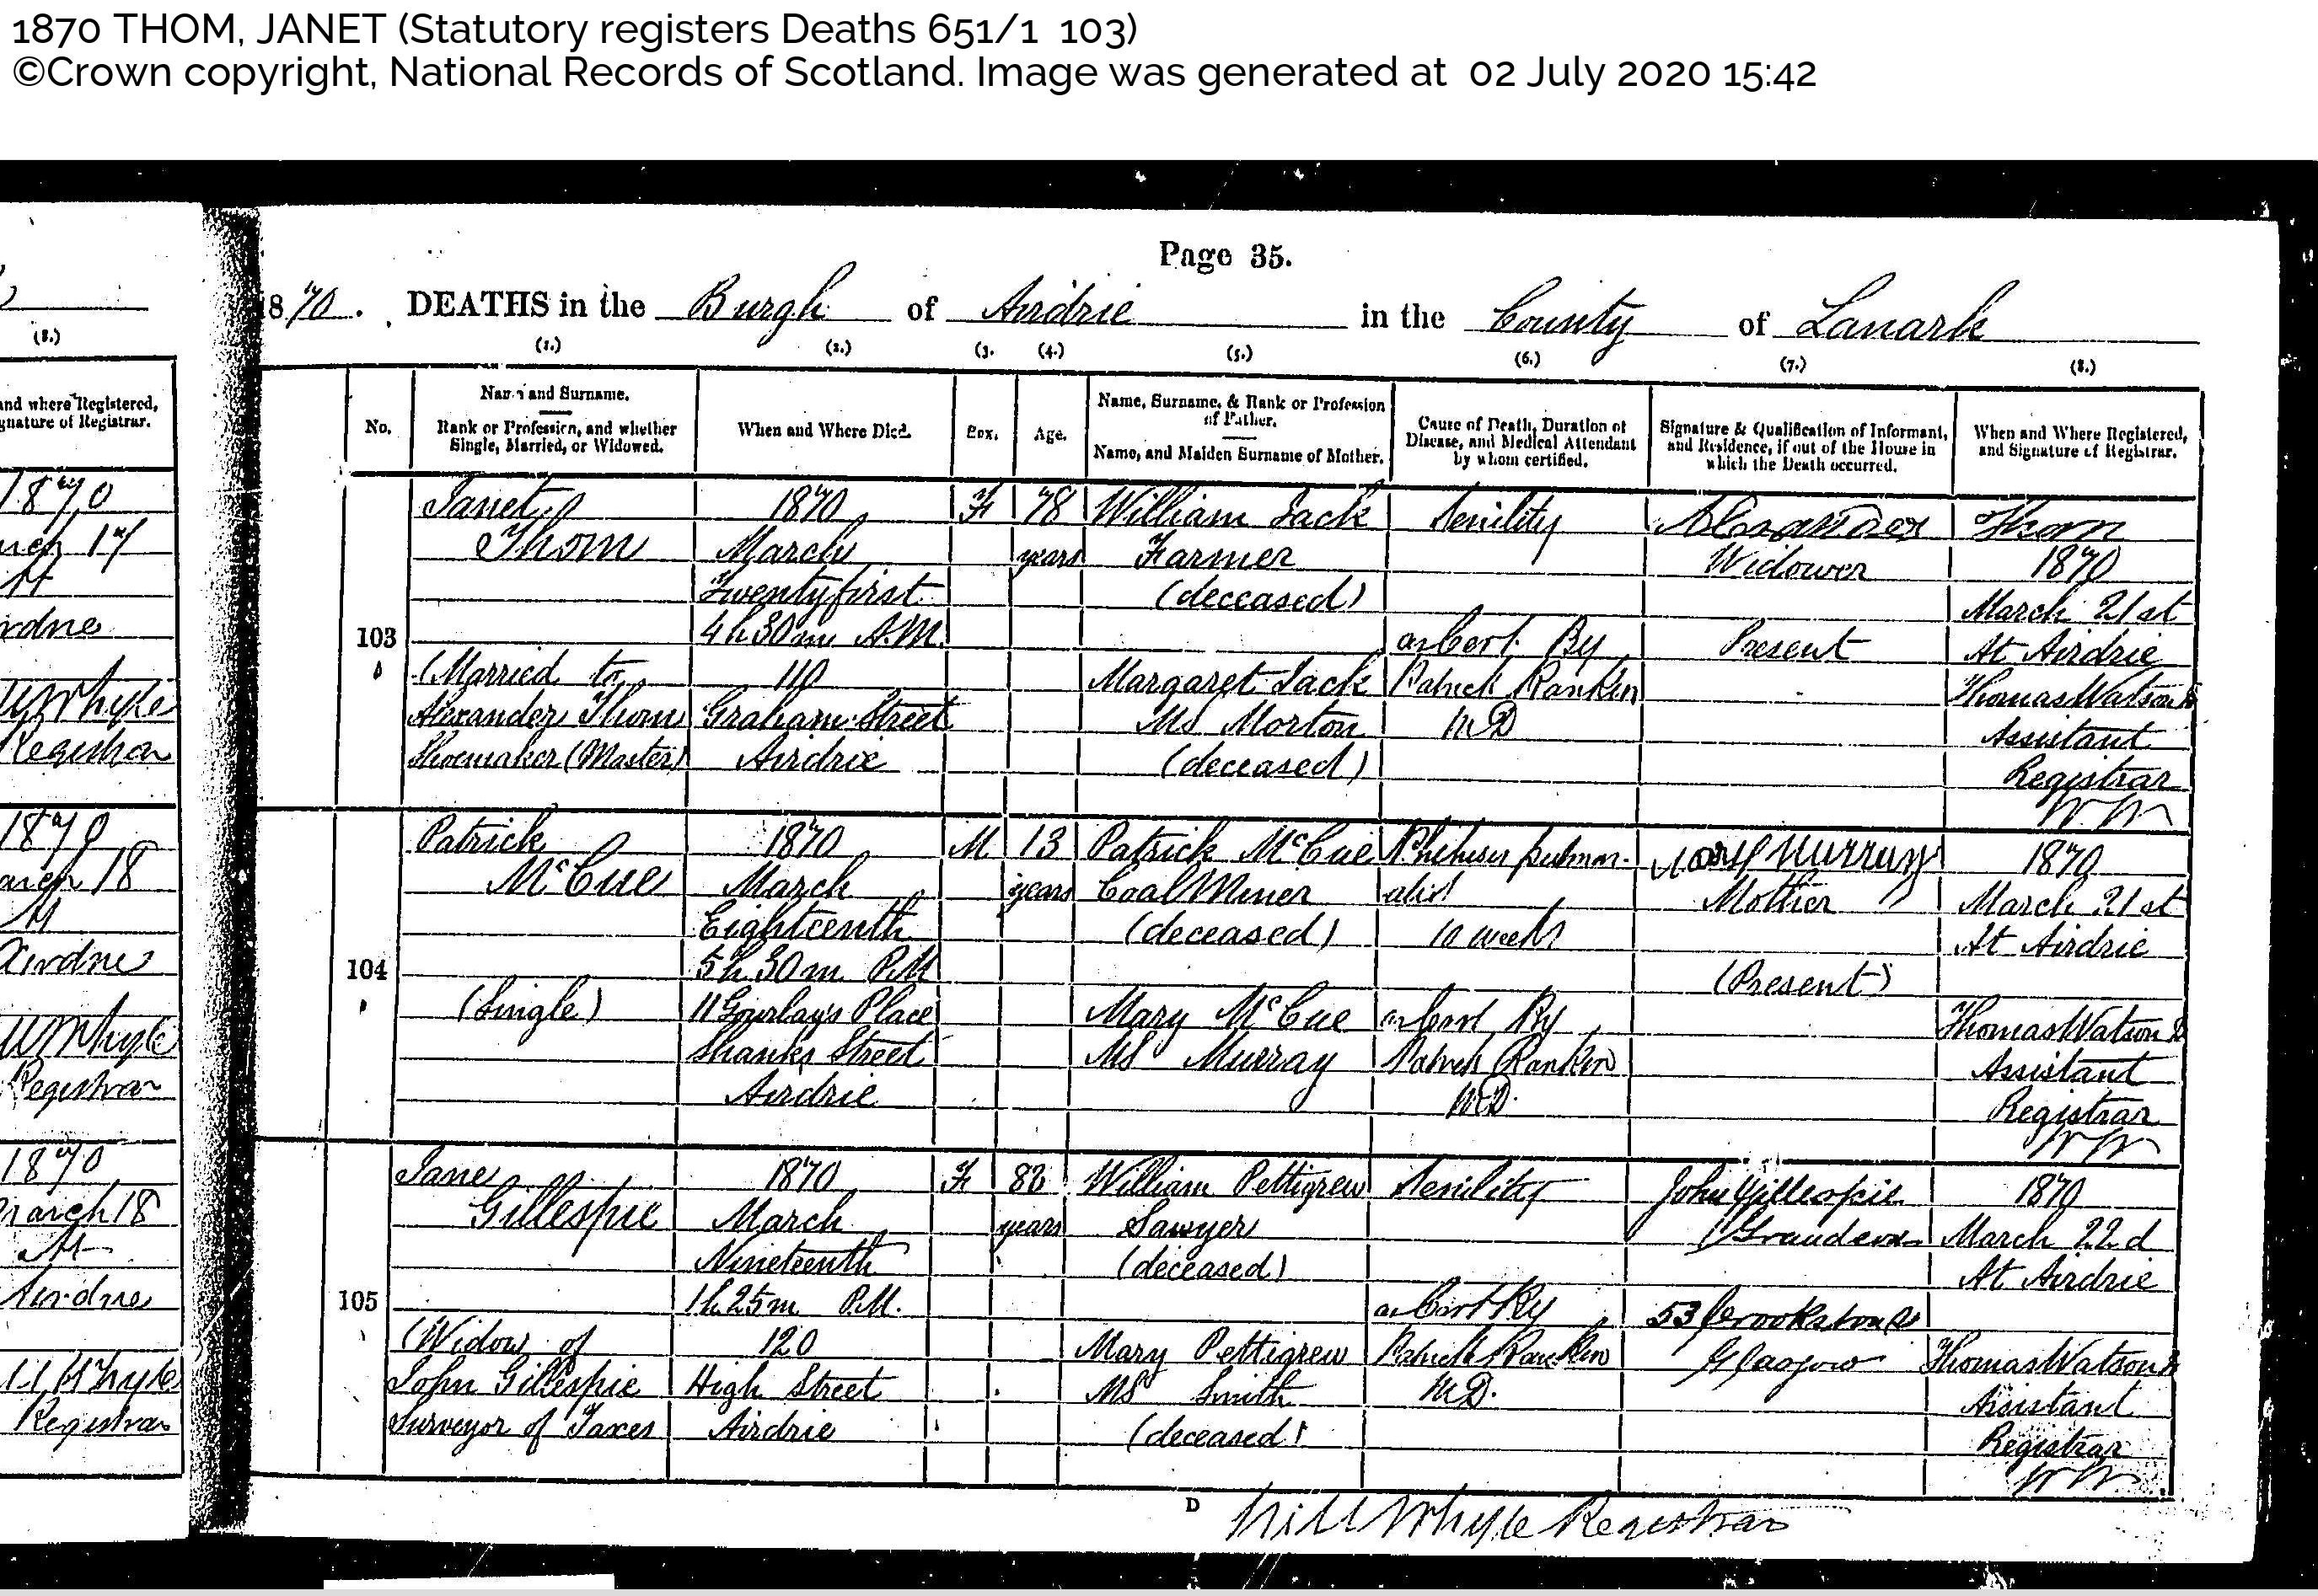 1870 THOM, JANET (Statutory registers Deaths 651/1 103)
©Crown copyright, National Records of Scotland. Image was generated at 02 July 2020 15:42
Page 35.
1870. DEATHS in the Burgh of Airdrie in the County of Lanark
(8.)
(1.) (2.) (3. (4.) (5.) (6.) (7.) (8.)
and where Registered,
gnature of Registrar.
No.
Name and Surname.
Rank or Profession, and whether
Single, Married, or Widowed.
When and Where Died.
Sex.
Age.
Name, Surname, & Rank or Profession
of Father.
Name, and Maiden Surname of Mother.
Cause of Death, Duration of
Disease, and Medical Attendant
by whom certified.
Signature & Qualification of Informant,
and Residence, if out of the House in
which the Death occurred.
When and Where Registered,
and Signature of Registrar.
1870
March 17
At
Airdrie
Whyte
Registrar
103
Janet
Thom
(Married to
Alexander Thom
Shoemaker (Master)
1870
March
Twentyfirst
4h 30m A.M.
110
Graham Street
Airdrie
F
78
years
William Jack
Farmer
(deceased)
Margaret Jack
MS Morton
(deceased)
Senility
as Cert. By
Patrick Rankin
MD
Alexander Thom
Widower
Present
1870
March 21st
At Airdrie
Thomas Watson
Assistant
Registrar
WW
1870
March 18
At
Airdrie
Whyte
Registrar
104
Patrick
McCue
(Single)
1870
March
Eighteenth
5h 30m P.M
11 Gourlay's Place
Shanks Street
Airdrie
M
13
years
Patrick McCue
Coal Miner
(deceased)
Mary McCue
MS Murray
Phthisis pulmon-
alis
10 weeks
as Cert By
Patrick Rankin
M.D.
Mary Murray
Mother
(Present)
1870
March 21st
At Airdrie
Thomas Watson
Assistant
Registrar
WW
1870
March 18
At
Airdrie
Whyte
Registrar
105
Jane
Gillespie
(Widow of
John Gillespie
Surveyor of Taxes
1870
March
Nineteenth
1h 25m P.M.
120
High Street
Airdrie
F
years
William Pettigrew
Sawyer
(deceased)
Mary Pettigrew
MS Smith
(deceased)
Senility
as Cert By
Patrick Rankin
M.D.
John Gillespie
Grandson
53 Crookston St
Glasgow
1870
March 22d
At Airdrie
Thomas Watson
Assistant
Registrar
WW
D
Will Whyte Registrar